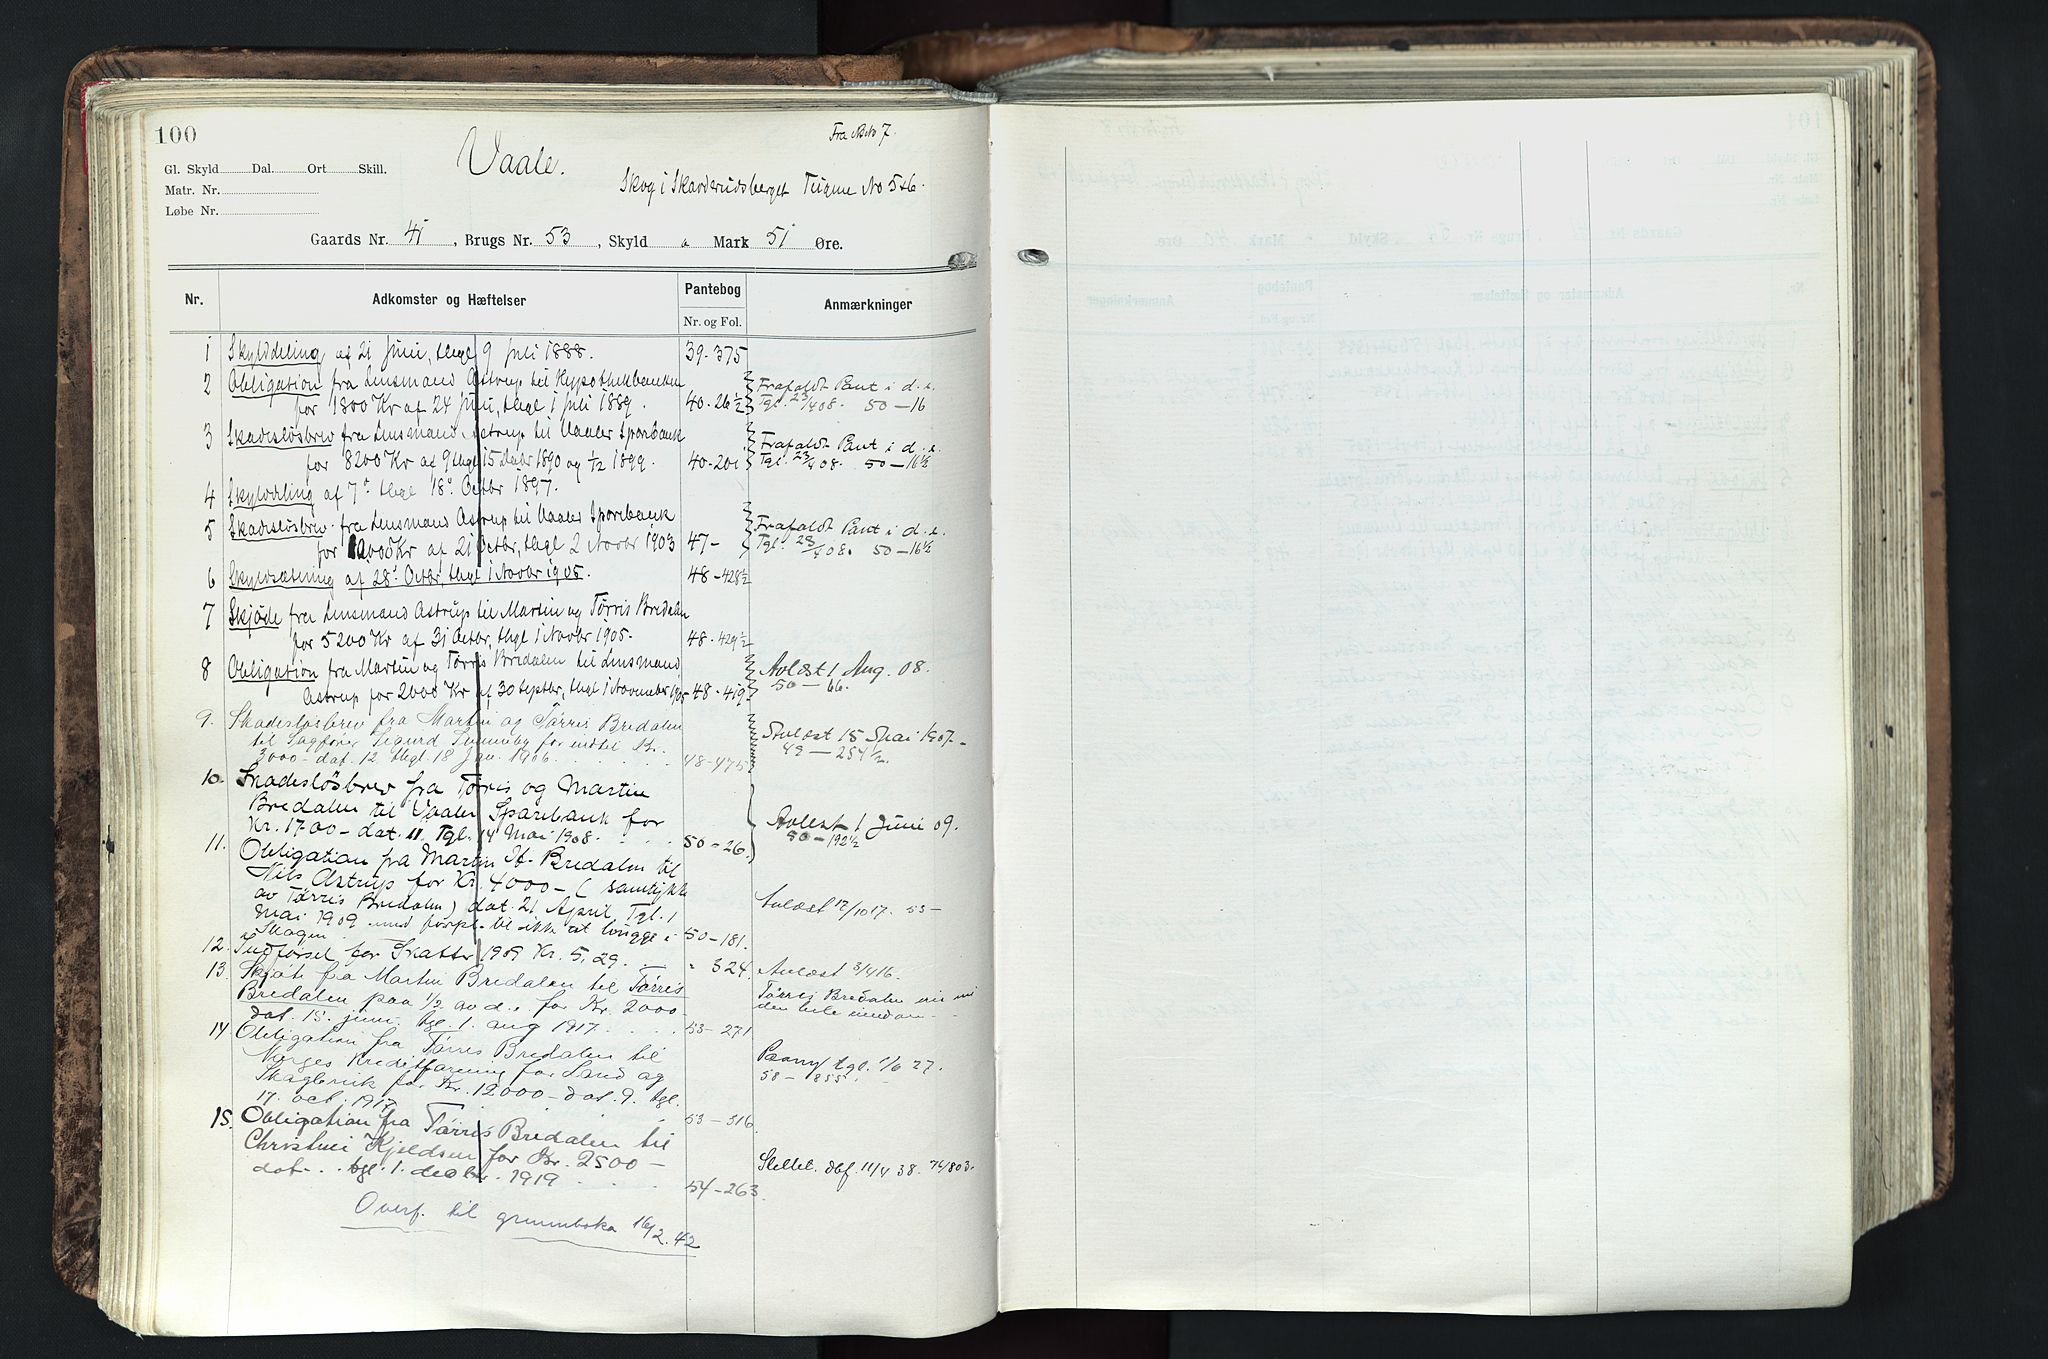 100
Vaale.
Fra
7.
Gl. Skyld Dal. Ort Skill.
Matr. Nr.
Løbe Nr.
Skog i Skarderudsberget Teigene No 5+6.
Gaards Nr. 41, Brugs Nr. 53, Skyld Mark 51 Øre.
Nr. Adkomster og Hæftelser Pantebog Anmærkninger
Nr. og Fol.
1 Skylddeling af 21 Juni, thgl 9 Juli 1888. 39-375
2 Obligation fra Lensmand Astrup til Hypothekbanken
for 1800 Kr af 24 Juni, thgl 1 Juli 1889. 40-26½
Frafaldt Pant i d. e.
Tgl. 23/4 08. 50-16
3 Skadesløsbrev fra Lensmand Astrup til Vaaler Sparebank
for 8200 Kr af 9 thgl 15 Decbr 1890 og ½ 1899. 40-201
Frafaldt Pant i d. e.
Tgl. 23/4 08. 50-16½
4 Skylddeling af 7' thgl 18' Octbr 1897.
5 Skadesløsbrev fra Lensmand Astrup til Vaaler Sparebank
for Kr af 21 Octbr, thgl 2 Novbr 1903 47-
Frafaldt Pant i d. e.
Tgl. 23/4 08. 50-16½
6 Skyldsætning af 28' Octbr, thgl 1 Novbr 1905. 48-428½
7 Skjøde fra Lensmand Astrup til Martin og Tørris Bredalen
for 5200 Kr af 31 Octbr, thgl 1 Novbr 1905. 48-429½
8 Obligation fra Martin og Tørris Bredalen til Lensmand
Astrup for 2000 Kr af 30 Septbr, thgl 1 November 1905 48-419
Avlæst 1 Aug. 08.
50-66.
9. Skadesløsbrev fra Martin og Tørris Bredalen
til Sagfører Sigurd for indtil Kr.
3000- dat. 12 thgl 18 Jan. 1906 48-475
Avlæst 15 Mai 1907-
49-254½.
10. Skadesløsbrev fra Tørris og Martin
Bredalen til Vaaler Sparebank for
Kr. 1700- dat. 11 Tgl. 14 Mai 1908. 50-26.
Avlæst 1 Juni 09.
50-192½
11. Obligation fra Martin H. Bredalen til
Nils Astrup for Kr. 4000- ( samtykke
av Tørris Bredalen) dat. 21 April, Tgl. 1
Mai 1909 med forpl. til ikke at hugge i
Skogen. 50-181.
Avlæst 12/10 17. 53-
12. Indførsel for Skatter 1909 Kr. 5,29. " 324.
Avlæst 3/4 16.
13. Skjøte fra Martin Bredalen til Tørris
Bredalen paa ½ av d.e. for Kr. 2000-
dat. 15. juni, tgl. 1. aug 1917. 53-271
Tørris Bredalen
den hele eiendom
14 Obligation fra Tørris Bredalen til
Norges Kreditforening for Land og
Skogbruk for Kr. 12000- dat. 9. tgl.
17. oct. 1917 53-316
tgl. 1/6 27.
58-855.
15. Obligation fra Tørris Bredalen til
Christine Kjeldsen for Kr. 2500-
dat- tgl. 1. decbr. 1919 54-263.
Slettet. dbf. 11/4 38. 74/803.
Overf. til grunnboka 16/2. 42